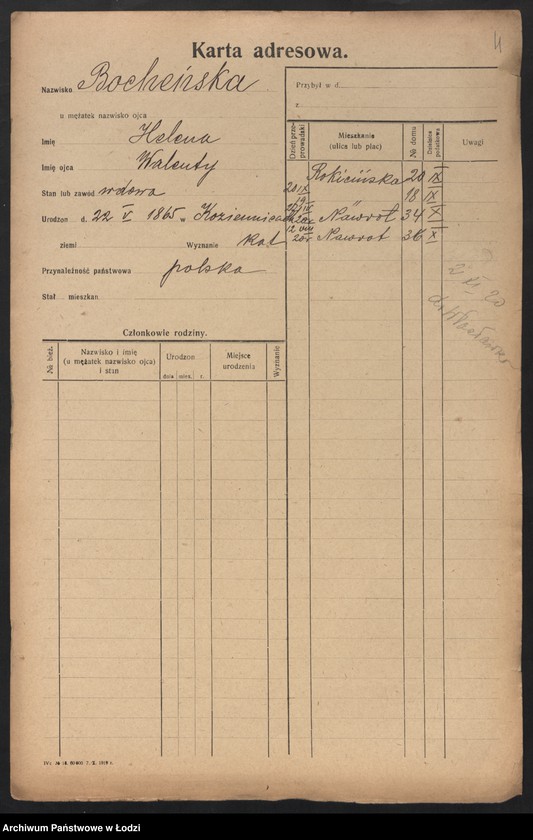 4
Karta adresowa.
Nazwisko Bocheńska
u mężatek nazwisko ojca
Imię Helena
Imię ojca Walenty
Stan lub zawód wdowa
Urodzon d. 22 V 1865 w Kozienicach
ziemi Wyznanie kat
Przynależność państwowa polska
Stał mieszkan
Przybył w d.
z
Dzień przeprowadzki
Mieszkanie
(ulica lub plac)
№ domu
Dzielnica policyjna
Uwagi
Rokicińska 20 IX
18 IX
Nawrot 34 X
Nawrot 36 X
Członkowie rodziny.
№ bież.
Nazwisko i imię
(u mężatek nazwisko ojca)
i stan
Urodzon
data mies. r.
Miejsce
urodzenia
Wyznanie
Archiwum Państwowe w Łodzi